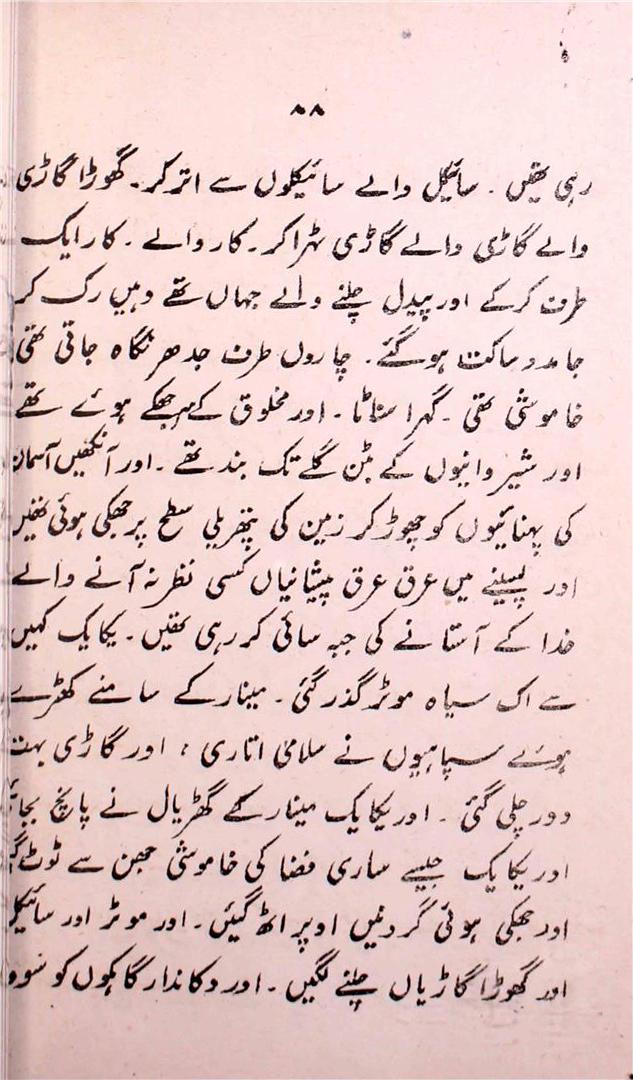 ۸۸
رہی تھیں ۔ سائیکل والے سائیکلوں سے اتر کر ۔ گھوڑا گاڑی
والے گاڑی والے گاڑی ٹہرا کر ۔ کار والے ۔ کار ایک
طرف کرکے اور پیدل چلنے والے جہاں تھے وہیں رک کر
جامد و ساکت ہوگئے ۔ چاروں طرف جدھر نگاہ جاتی تھی
خاموشی تھی ۔ گہرا سناٹا ۔ اور مخلوق کے سر جھکے ہوئے تھے
اور شیروانیوں کے بٹن گلے تک بند تھے ۔ اور آنکھیں آسمان
کی پہنائیوں کو چھوڑ کر زمین کی پتھریلی سطح پر جھکی ہوئی تھیں
اور پسینے میں عرق عرق پیشانیاں کسی نظر نہ آنے والے
خدا کے آستانے کی جبہ سائی کر رہی تھیں ۔ یکایک کہیں
سے اک سیاہ موٹر گذر گئی ۔ مینار کے سامنے کھڑے
ہوئے سپاہیوں نے سلامی اتاری ؛ اور گاڑی بہت
دور چلی گئی ۔ اور یکایک مینار کے گھڑیال نے پانچ
اور یکایک جیسے ساری فضا کی خاموشی چھن سے ٹوٹ
اور جھکی ہوئی گردنیں اوپر اٹھ گئیں ۔ اور موٹر اور
اور گھوڑا گاڑیاں چلنے لگیں ۔ اور دکاندار گاہکوں کو